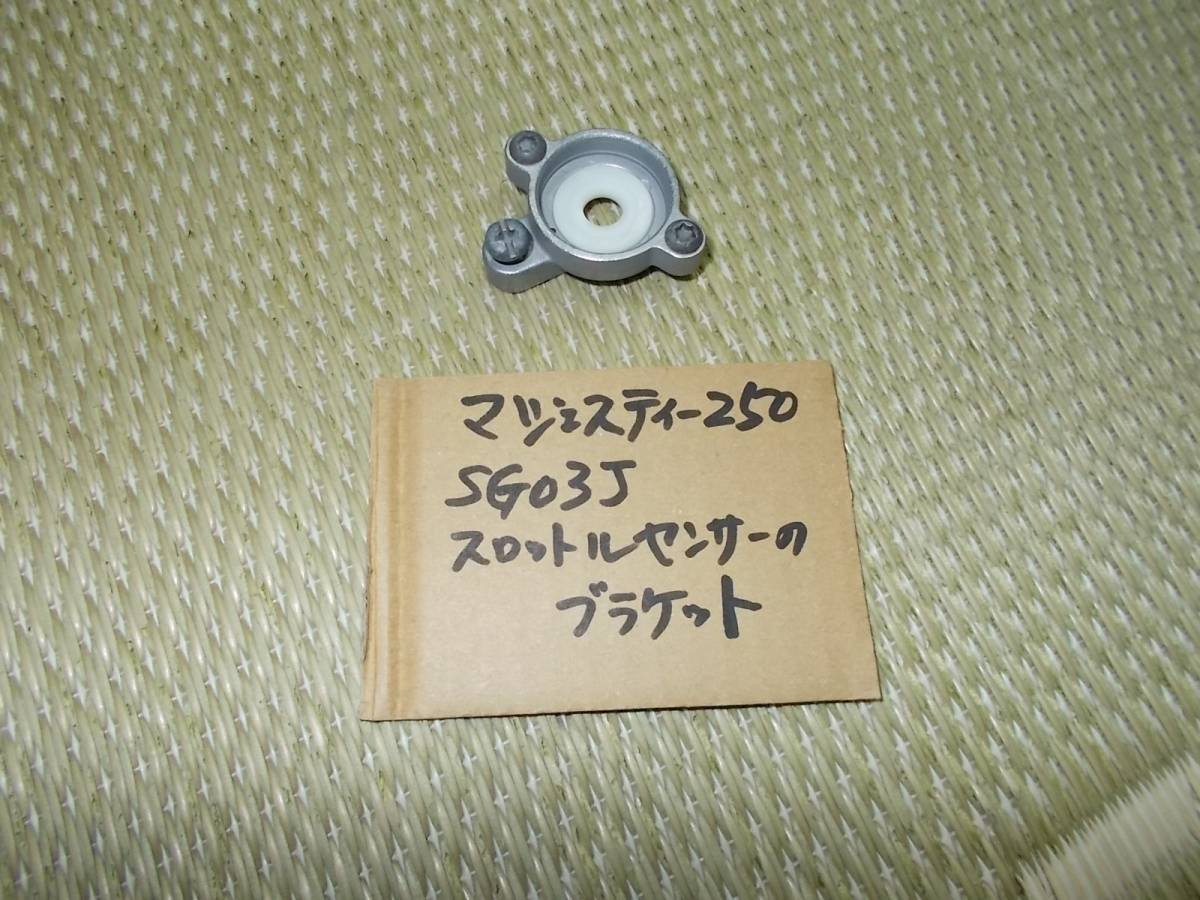 マジェスティー250
SG03J
スロットルセンサーの
ブラケット